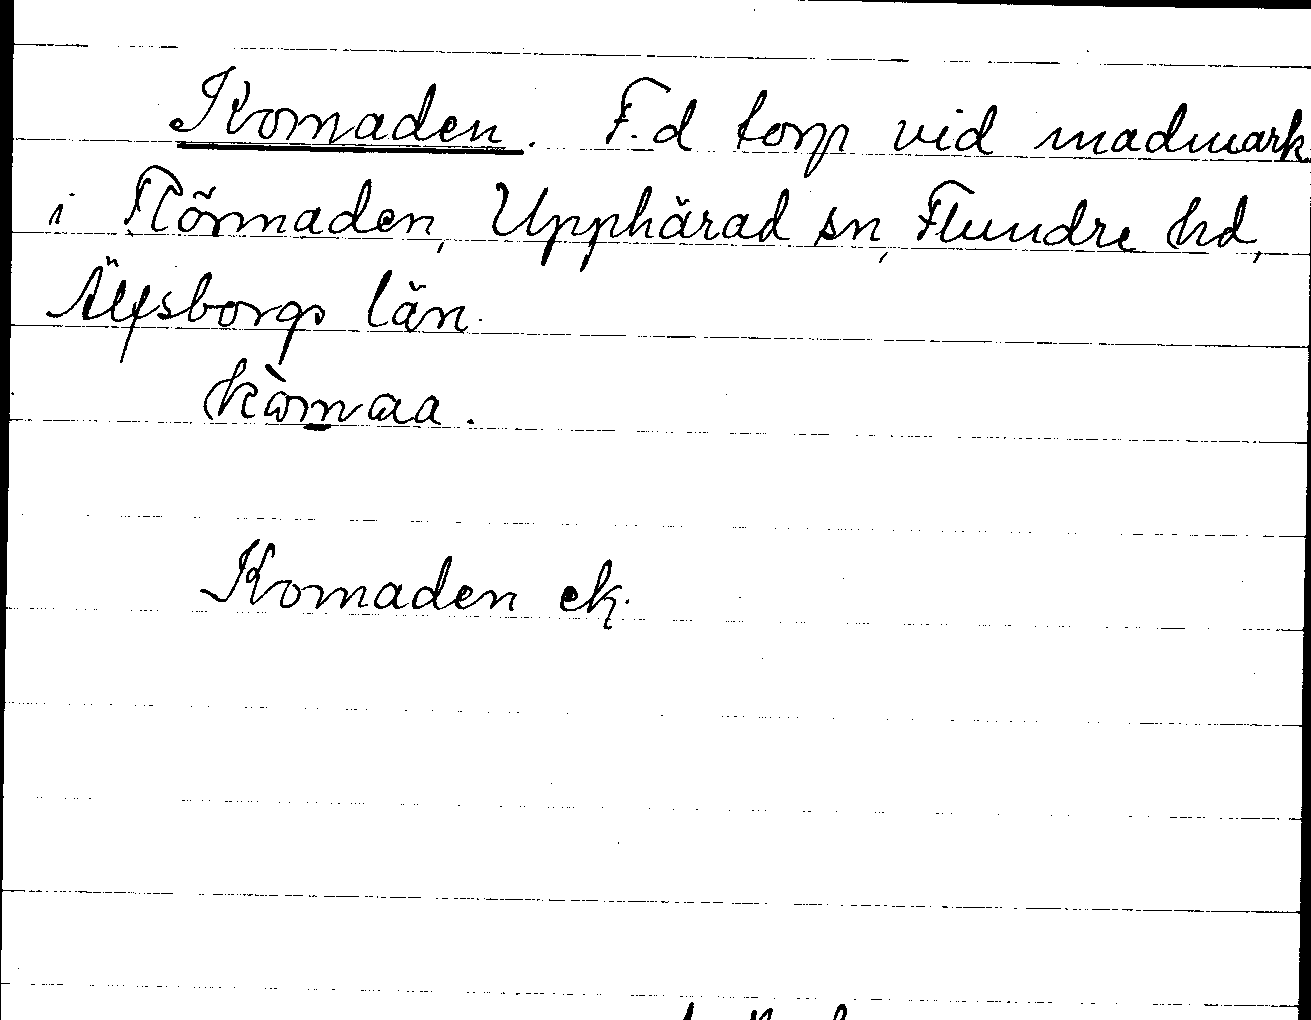 Komaden. F.d torp vid madmark
i Flörmaden, Upphärad sn, Flundre hd,
Älfsborgs län.
kòmaa.
Komaden ek.